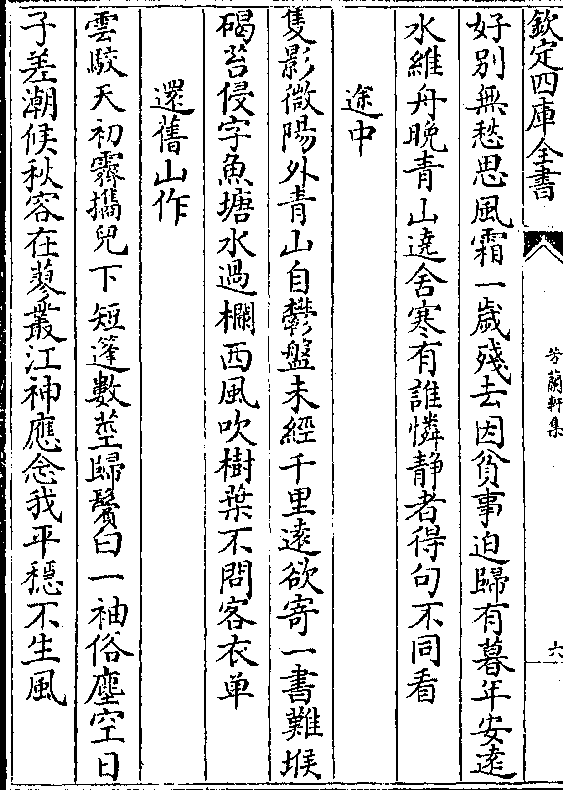 欽定四庫全書
芳蘭軒集
六
好別無愁思風霜一歳殘去因貧事迫歸有暮年安逺
水維舟晚青山遶舍寒有誰憐静者得句不同看
途中
隻影微陽外青山自鬱盤未經千里逺欲寄一書難堠
碣苔侵字魚塘水過欄西風吹樹葉不問客衣单
還舊山作
雲駮天初霽攜兒下短篷數莖歸鬢白一袖俗塵空日
子差潮候秋容在蓼叢江神應念我平穏不生風